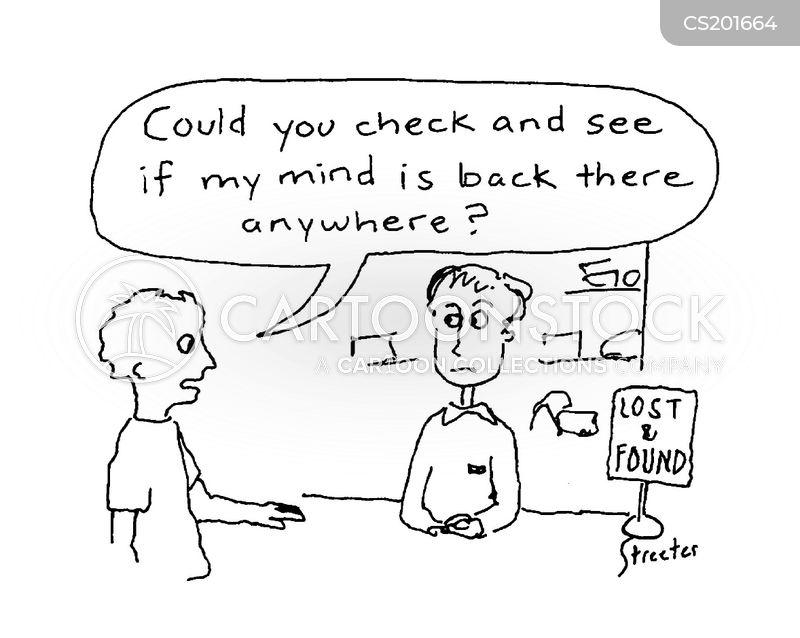 CS201664
Could you check and see
if my mind is back there
anywhere?
CARTOONSTOCK
A CARTOON COLLECTIONS COMPANY
LOST
&
FOUND
Streeter